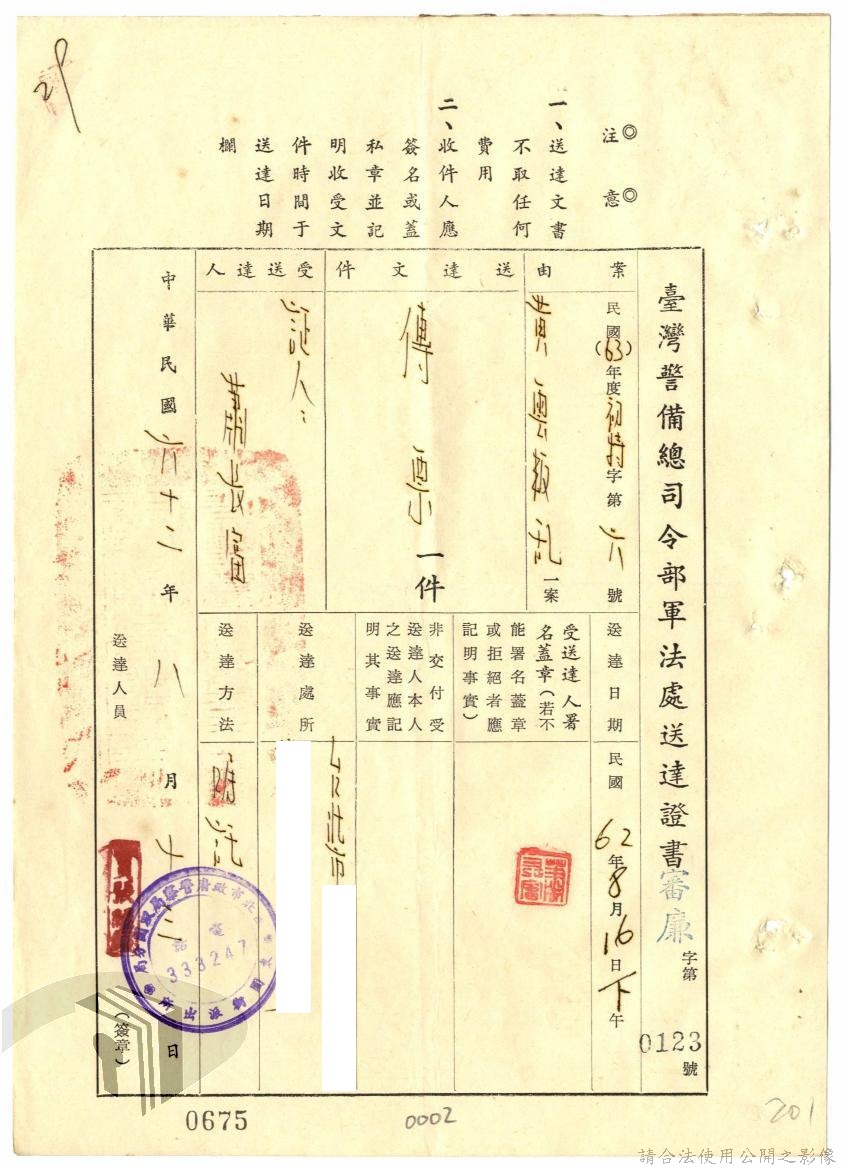 29
◎注 意◎
一、送達文書
不取任何
費用
二、收件人應
簽名或蓋
私章並記
明收受文
件時間于
送達日期
欄
臺灣警備總司令部軍法處送達證書審廉字第0123號
案由
民國(63)年度初特字第六號
黃雲叛乱一案
送達文件
傳票一件
受送達人
証人:
蕭長富
送達日期
民國62年8月16日下午
受送達人署
名蓋章(若不
能署名蓋章
或拒絕者應
記明事實)
非交付受
送達人本人
之送達應記
明其事實
送達處所
台北市
送達方法
附託
中華民國六十二年八月十二日
送達人員
(簽章)
電話
333247
0675
0002
201
請合法使用公開之影像